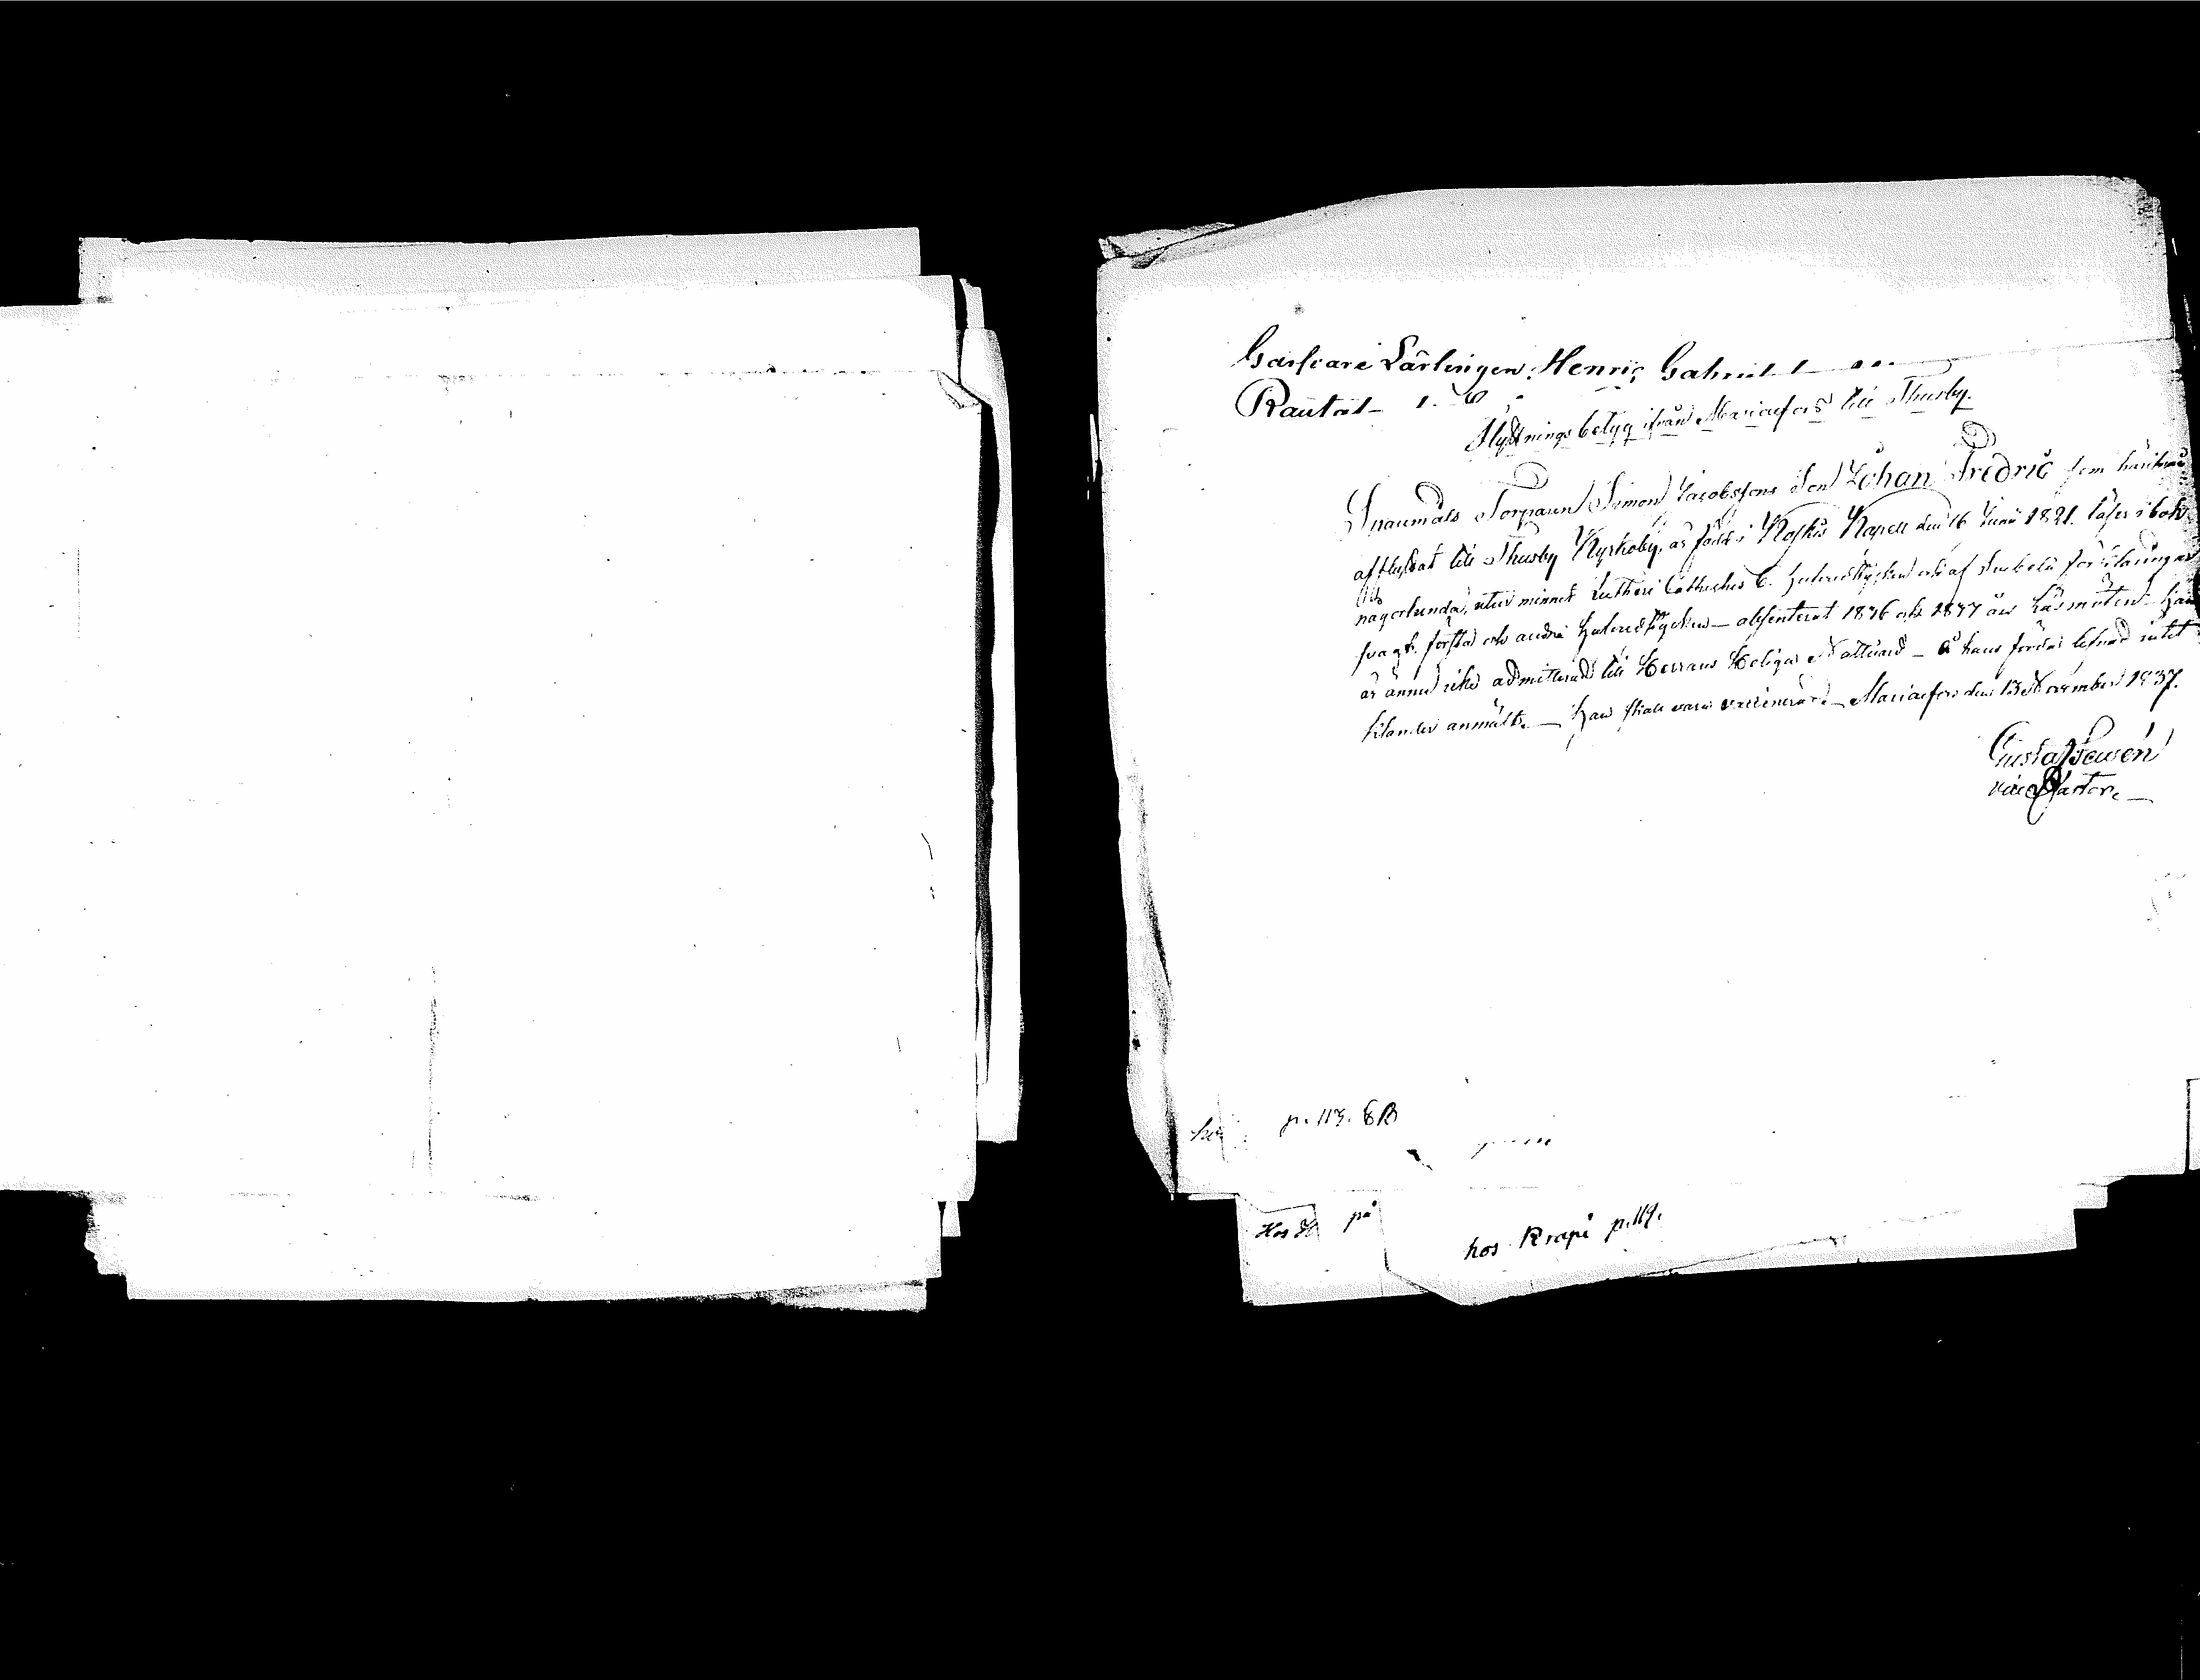 Garfvare Lärlingen Henric Gabriel
Flyttnings betyg ifrån Mariaefors till Thusby.
Torparen Simon Jacobssons Son Johan Fredric som härifrån
afflyttat till Thusby Kyrkoby, är född i Koskis Kapell den 16 Junii 1821. läser i bok
någorlunda, utur minnet Lutheri Catheches 6. Hufvudstycken och af enkela förklaringar
svagt första och andra Hufvudstycken – absenterat 1836 och 1837 års Läsmöten – Han
är ännu icke admitterad till Herrans Heliga Nattvard – å hans förda lefnad intet
klander anmält. – Han skall vara vaccinerad. – Mariaefors den 13 November 1837.
Gustaf
vice Pastor. –
p. 113. KB
Hos på
hos Krapi p. 119.